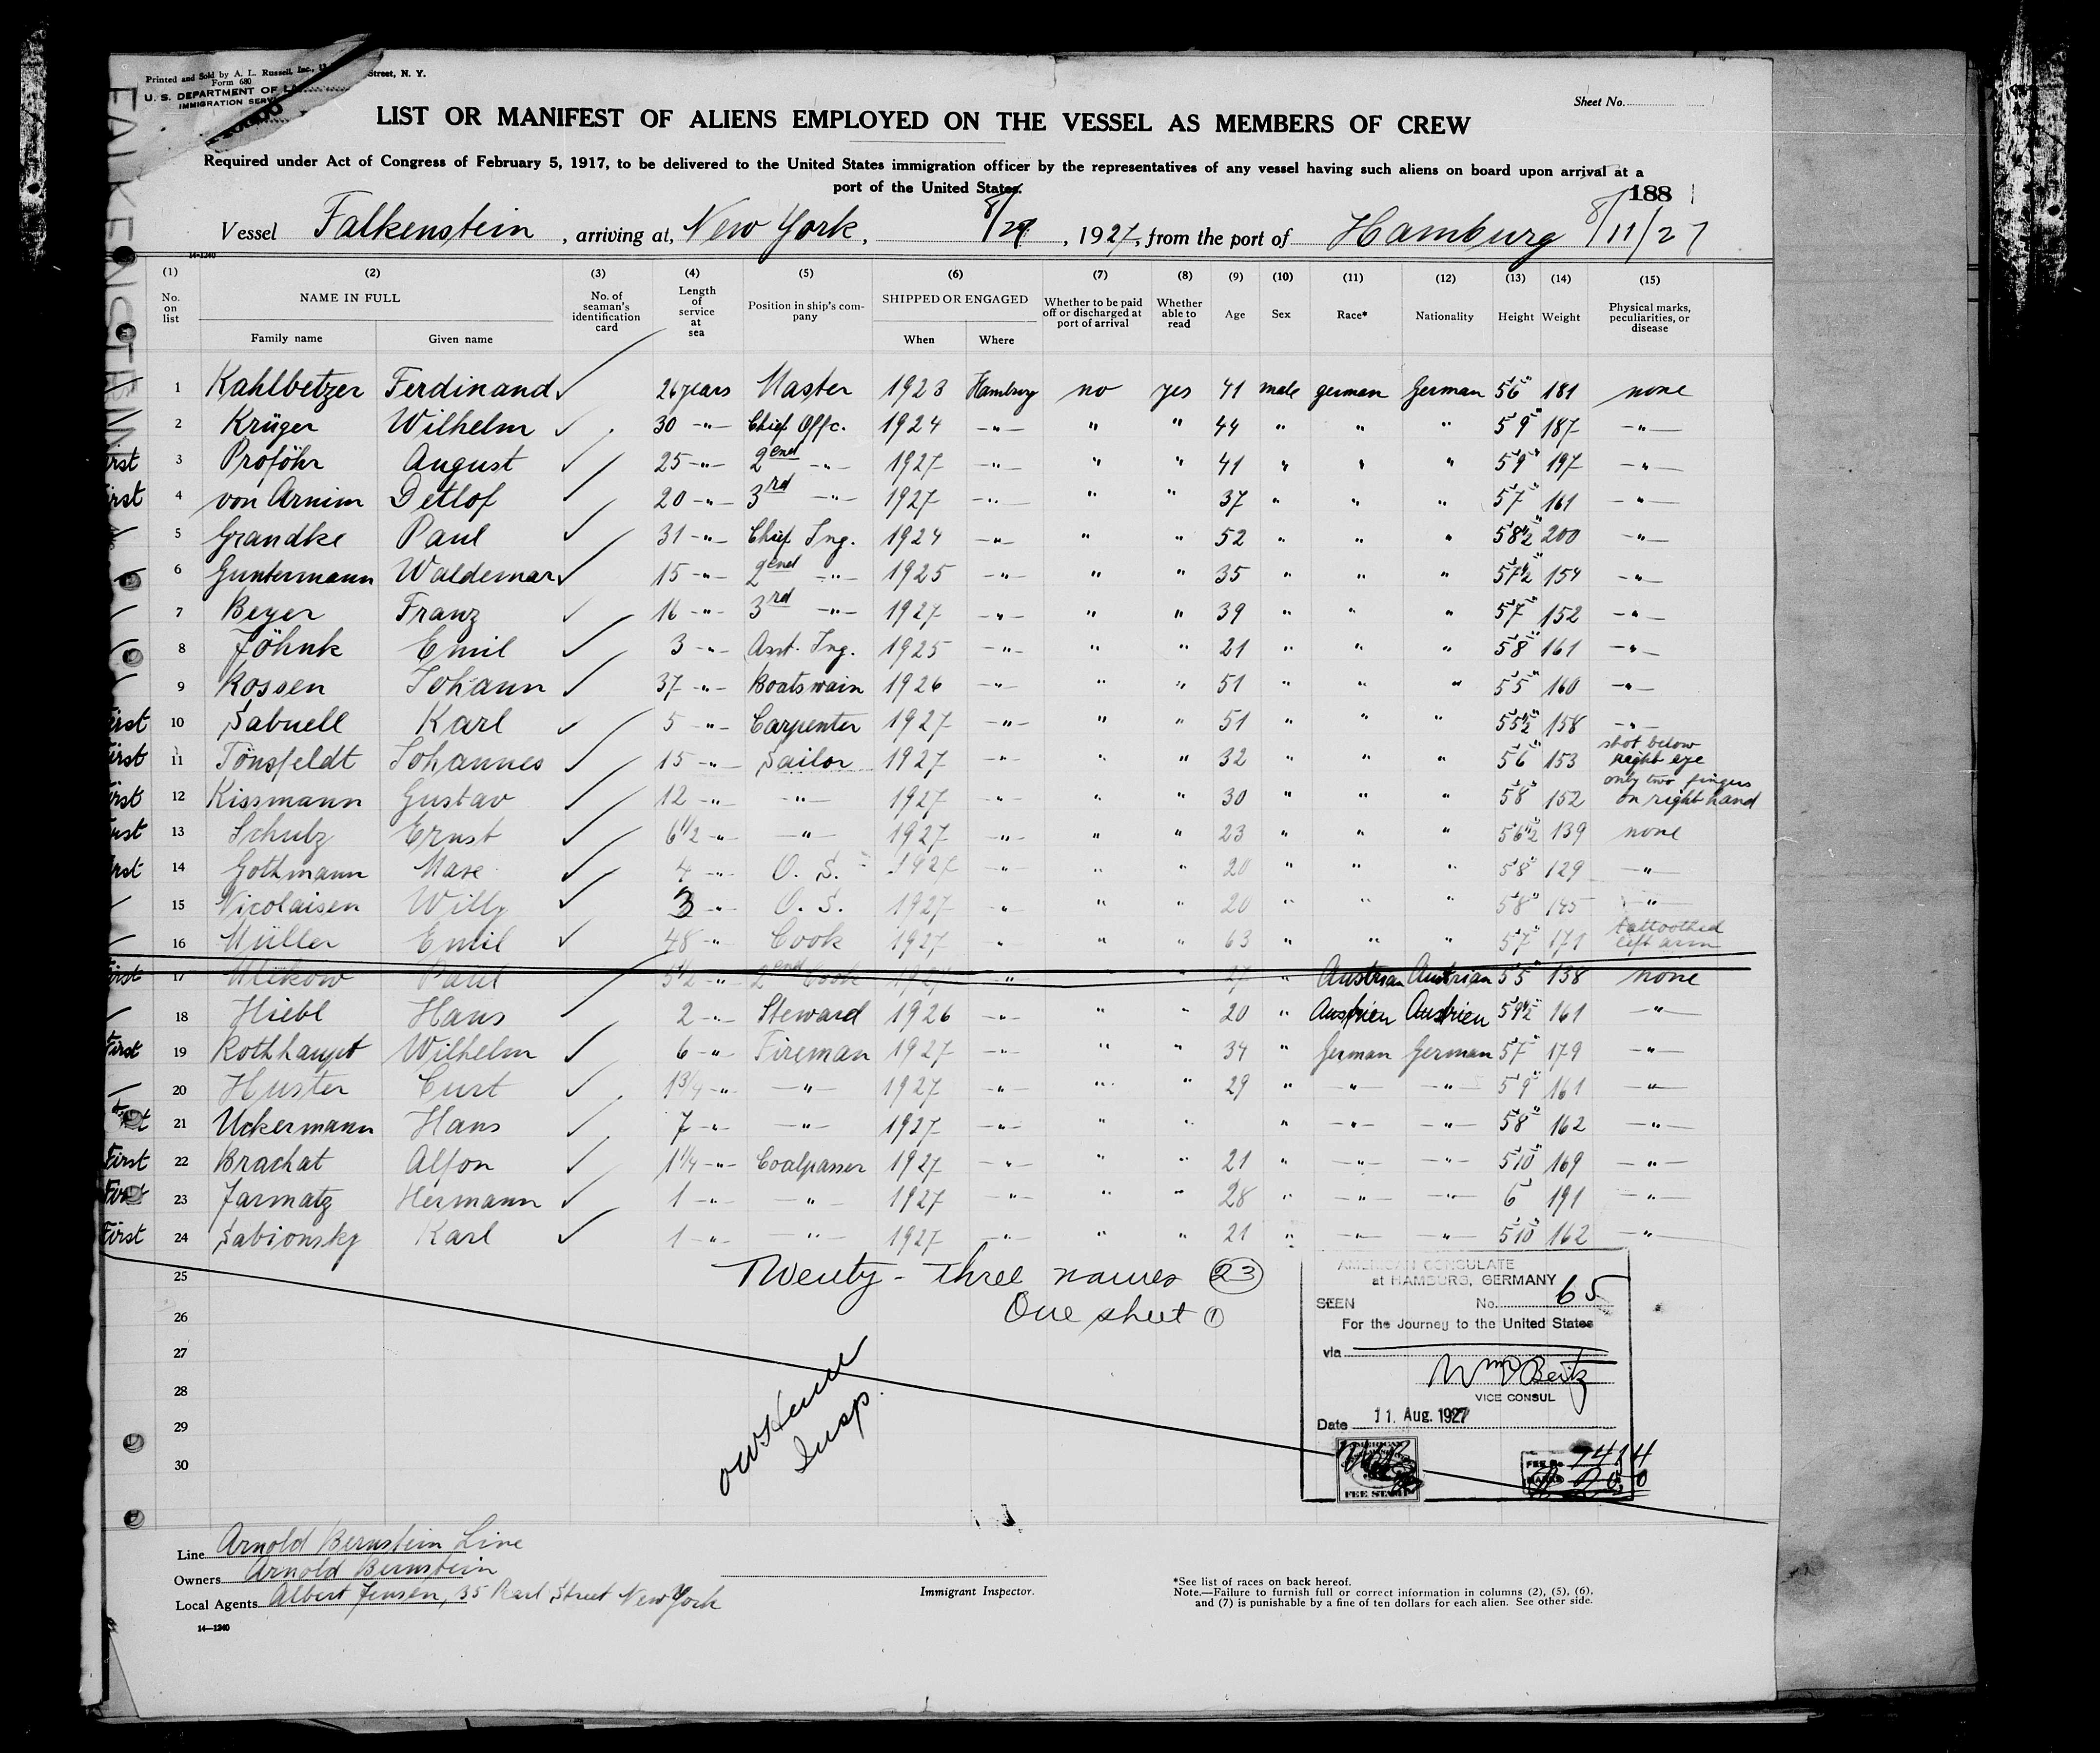 Printed and Sold by A. L. Russell, Inc., Street, N. Y.
Form 680
U. S. DEPARTMENT OF
IMMIGRATION
FALKENSTEIN
Sheet No.
LIST OR MANIFEST OF ALIENS EMPLOYED ON THE VESSEL AS MEMBERS OF CREW
Required under Act of Congress of February 5, 1917, to be delivered to the United States immigration officer by the representatives of any vessel having such aliens on board upon arrival at a
port of the United States.
188
Vessel Falkenstein, arriving at, New York, 8/29, 1927, from the port of Hamburg 8/11/27
14-1240
(1) (2) (3) (4) (5) (6) (7) (8) (9) (10) (11) (12) (13) (14) (15)
No. on list NAME IN FULL Family name Given name No. of seaman's identification card Length of service at sea Position in ship's company SHIPPED OR ENGAGED When Where Whether to be paid off or discharged at port of arrival Whether able to read Age Sex Race* Nationality Height Weight Physical marks, peculiarities, or disease
1 Kahlbetzer Ferdinand ✓ 26 years Master 1923 Hamburg no yes 41 male german German 5'6" 181 none
2 Krüger Wilhelm ✓ 30 -"- Chief Offc. 1924 -"- " " 44 " " " 5'9" 187 -"-
First 3 Proföhr August ✓ 25 -"- 2end -"- 1927 -"- " " 41 " " " 5'9" 197 -"-
First 4 von Arnim Detlof ✓ 20 -"- 3rd -"- 1927 -"- " " 37 " " " 5'7" 161 -"-
5 Grandke Paul ✓ 31 -"- Chief Ing. 1924 -"- " " 52 " " " 5'8½" 200 -"-
6 Guntermann Waldemar ✓ 15 -"- 2end -"- 1925 -"- " " 35 " " " 5'7½" 154 -"-
7 Beyer Franz ✓ 16 -"- 3rd -"- 1927 -"- " " 39 " " " 5'7" 152 -"-
8 Jöhnk Emil ✓ 3 -"- Asst. Ing. 1925 -"- " " 21 " " " 5'8" 161 -"-
9 Rossen Johann ✓ 37 -"- Boatswain 1926 -"- " " 51 " " " 5'5" 160 -"-
First 10 Sabuell Karl ✓ 5 -"- Carpenter 1927 -"- " " 51 " " " 5'5½" 158 -"-
First 11 Tönsfeldt Johannes ✓ 15 -"- Sailor 1927 -"- " " 32 " " " 5'6" 153 shot below right eye
First 12 Kissmann Gustav ✓ 12 -"- -"- 1927 -"- " " 30 " " " 5'8" 152 only two fingers on right hand
First 13 Schulz Ernst ✓ 6½ -"- -"- 1927 -"- " " 23 " " " 5'6½" 139 none
First 14 Gothmann Maxe ✓ 4 -"- O. S. 1927 -"- " " 20 " " " 5'8" 129 -"-
15 Nicolaisen Willy ✓ 3 -"- O. S. 1927 -"- " " 20 " " " 5'8" 145 -"-
16 Müller Emil ✓ 48 -"- Cook 1927 " " " 63 " " " 5'7" 171 tattoothed left arm
First 17 Paul 5½ -"- 2end Cook 1927 -"- " 27 " Austrian Austrian 5'5" 138 none
18 Hiebl Hans 2 -"- Steward 1926 -"- " " 20 " Austrien Austrien 5'9½" 161 -"-
First 19 Rothhaupt Wilhelm ✓ 6 -"- Fireman 1927 -"- " " 34 " German German 5'7" 179 -"-
20 Huster Curt ✓ 1¾ -"- -"- 1927 -"- " " 29 " -"- -"- 5'9" 161 -"-
21 Uckermann Hans ✓ 7 -"- -"- 1927 -"- " " " -"- -"- 5'8" 162 -"-
First 22 Brachat Alfon ✓ 1¼ -"- Coalpasser 1927 -"- " " 21 " -"- -"- 5'10" 169 -"-
First 23 Jarmatz Hermann ✓ 1 -"- -"- 1927 -"- " " 28 " -"- -"- 6' 191 -"-
First 24 Sabionsky Karl ✓ 1 -"- -"- 1927 -"- " " 21 " -"- -"- 5'10" 162 -"-
25 Twenty-three names 23
26 One sheet 1
27
28
29
30
Insp.
AMERICAN CONSULATE
at HAMBURG, GERMANY
SEEN No. 65
For the Journey to the United States
via
Wm Beitz
VICE CONSUL
Date 11. Aug. 1927
FEE STAMP
FEE No 7414
Line Arnold Bernstein Line
Owners Arnold Bernstein
Local Agents Albert Jensen, 35 Pearl Street New York
14-1240
Immigrant Inspector.
*See list of races on back hereof.
Note.—Failure to furnish full or correct information in columns (2), (5), (6),
and (7) is punishable by a fine of ten dollars for each alien. See other side.